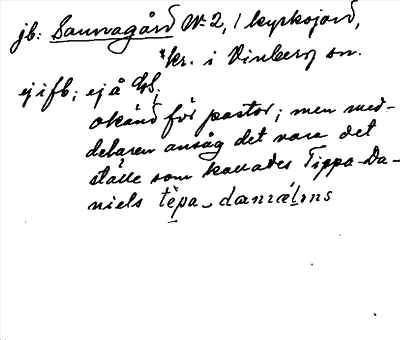 jb: Saunagård Nr 2, 1 kyrkojord,
kr. i Vinberg sn.
ej i fb; ej å GS;
okänd för pastor; men med-
delaren ansåg det vara det
ställe som kallades Tippa-Da-
niels